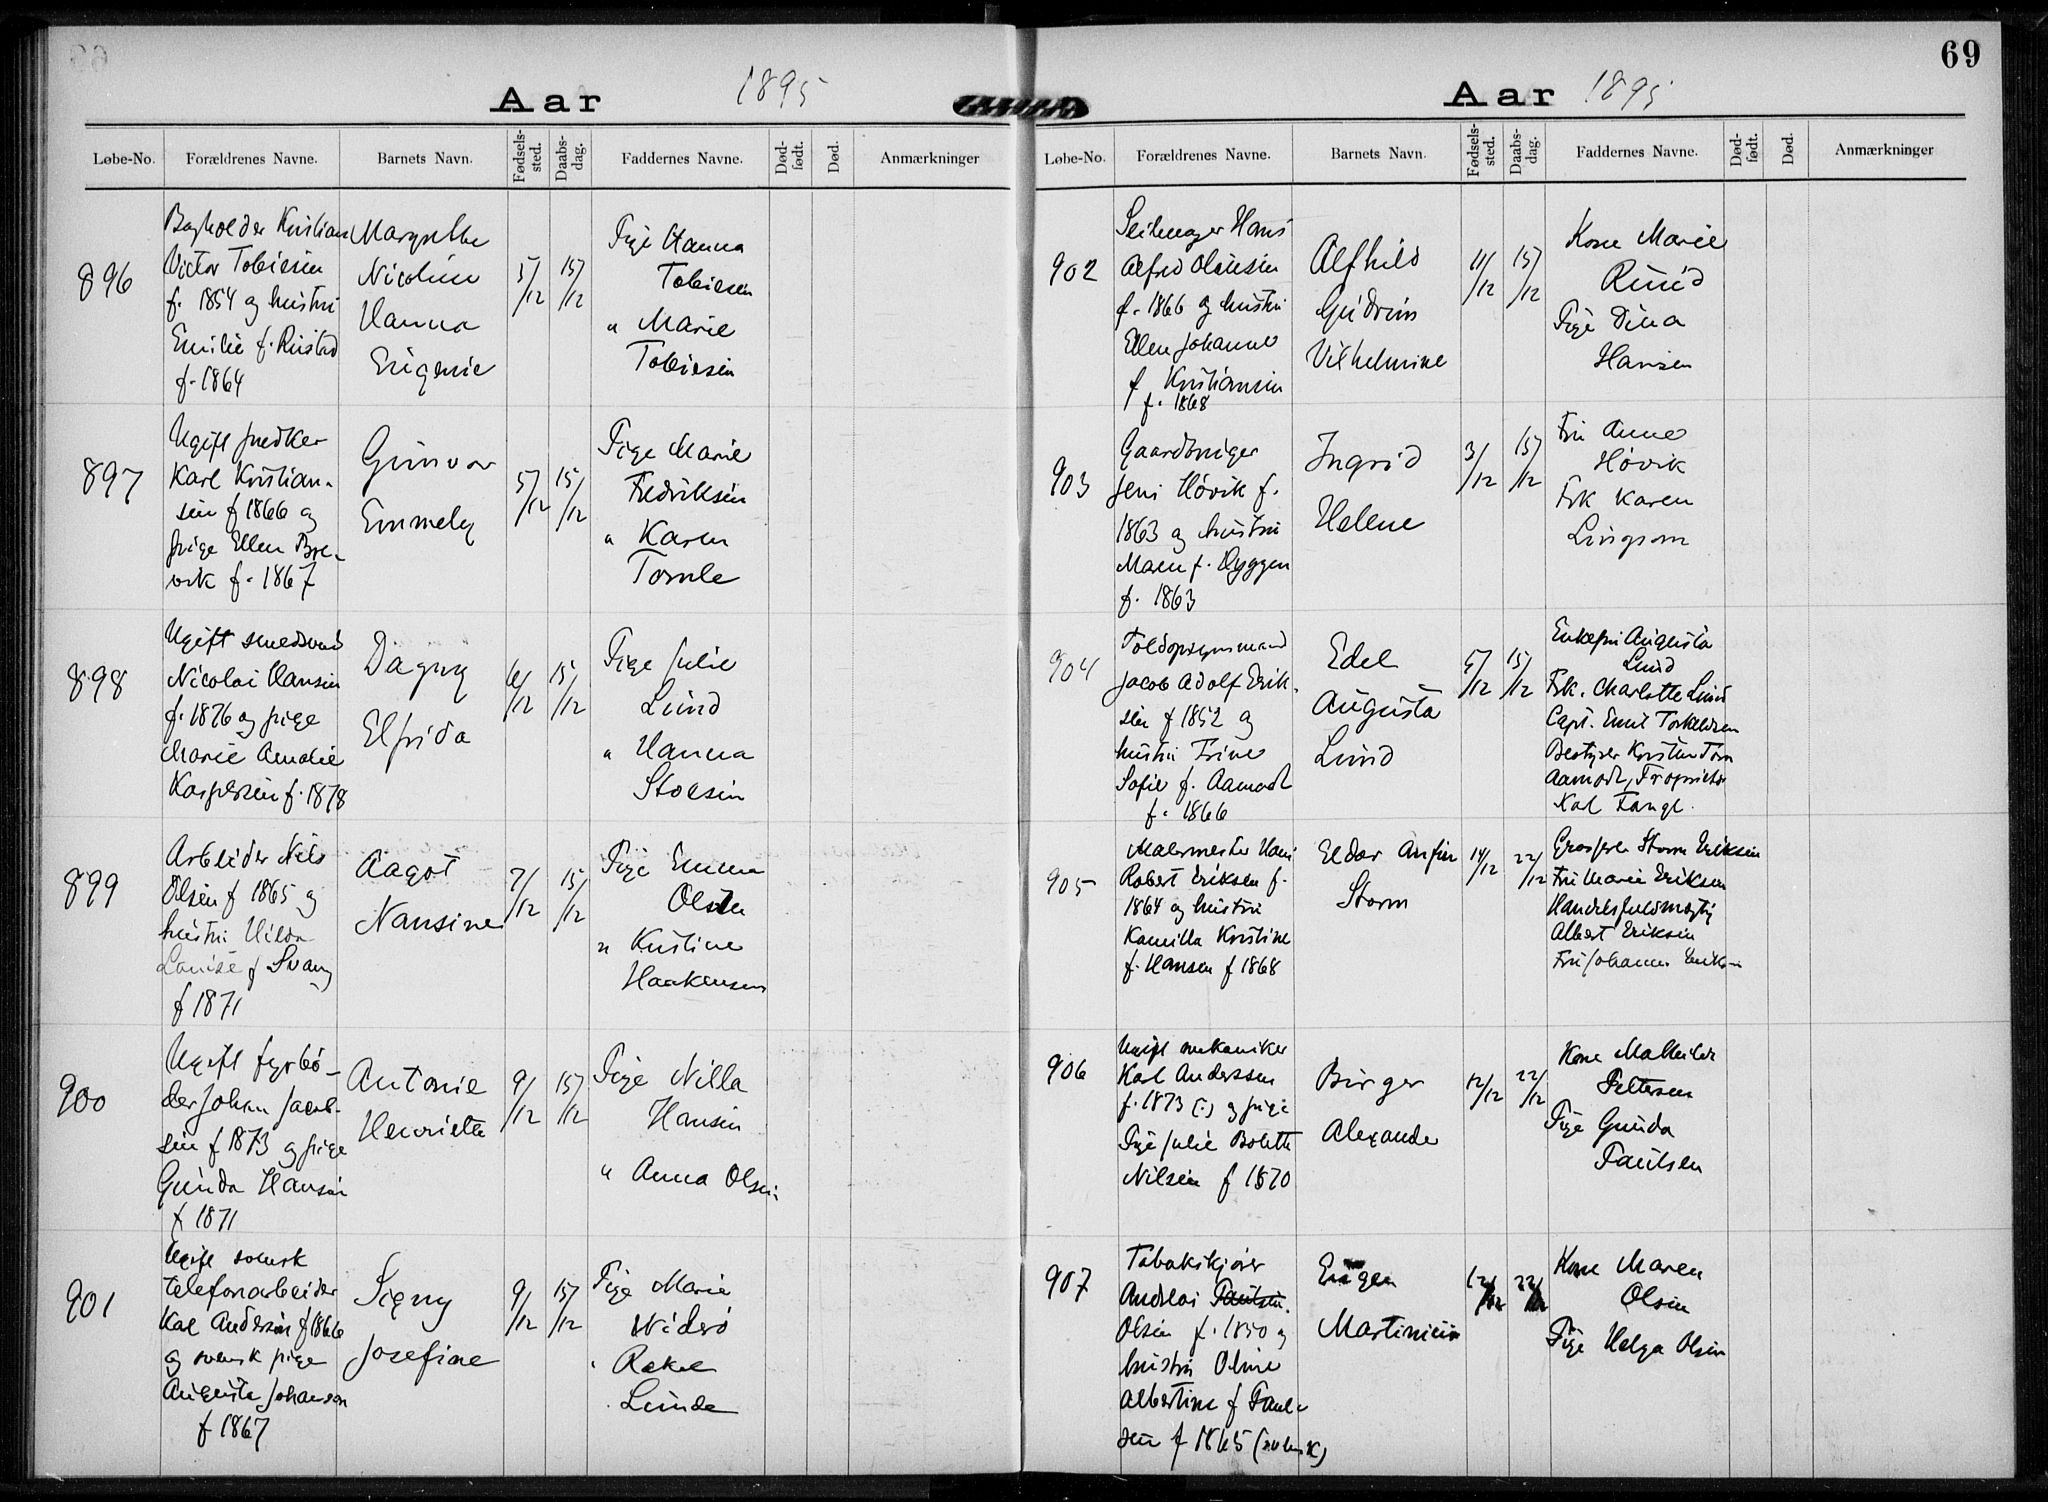 69
Aar 1895
Løbe-No. Forældrenes Navne. Barnets Navn. Fødsels-sted. Daabs-dag. Faddernes Navne. Død-født. Død. Anmærkninger
896
Bogholder Kristian
Victor Tobiesen
f. 1854 og hustru
Emilie f. Rustad
f. 1864
Margrethe
Nicoline
Hanna
Eugenie
5/12 15/12
Pige Hanna
Tobiesen
" Marie
Tobiesen
897
Ugift snedker
Karl Kristian-
sen f 1866 og
pige Ellen Bre-
vik f. 1867
Gunvor
Emmely
5/12 15/12
Pige Marie
Fredriksen
" Karen
Tomle
898
Ugift smedsvend
Nicolai Hansen
f. 1876 og pige
Marie Amalie
Kaspersen f. 1878
Dagny
Elfrida
6/12 15/12
Pige Julie
Lund
" Hanna
Stoesen
899
Arbeider Nils
Olsen f 1865 og
hustru Hilda
Louise f Svang
f 1871
Aagot
Nansine
7/12 15/12
Pige Emma
Olsen
" Kristine
Haakensen
900
Ugift fyrbø-
der Johan Jacob-
sen f 1873 og pige
Gunda Hansen
f 1871
Antonie
Henriette
9/12 15/12
Pige Nilla
Hansen
" Anna Olsen
901
Ugift svensk
telefonarbeider
Karl Andersen f 1866
og svensk pige
Augusta Johansen
f 1867
Signy
Josefine
9/12 15/12
Pige Marie
Viderø
" Rakel
Lunde
Aar 1895
Løbe-No. Forældrenes Navne. Barnets Navn. Fødsels-sted. Daabs-dag. Faddernes Navne. Død-født. Død. Anmærkninger
902
Seilmager Hans
Alfred Olausen
f. 1866 og hustru
Ellen Johanne
f Kristiansen
f. 1868
Alfhild
Gudrun
Vilhelmine
11/12 15/12
Kone Marie
Ruud
Pige Dina
Hansen
903
Gaardbruger
Jens Høvik f.
1863 og hustru
Maren f. Dyggen
f. 1863
Ingrid
Helene
3/12 15/12
Fru Anne
Høvik
Frk Karen
Lingsom
904
Toldopsynsmand
Jacob Adolf Erik-
sen f 1852 og
hustru Trine
Sofie f. Aamodt
f. 1866
Edel
Augusta
Lund
5/12 15/12
Enkefru Augusta
Lund
Frk. Charlotte Lund
Capt. Emil Torkildsen
Bestyrer Kristen Torn
Aamodt, Proprietær
Karl Fangl.
905
Malermester Hans
Robert Eriksen f.
1864 og hustru
Kamilla Kristine
f. Hansen f 1868
Eldar Anfin
Storm
14/12 22/12
Grosserer Storm Eriksen
Fru Marie Eriksen
Handelsfuldmægtig
Albert Eriksen
Fru Johanne Eriksen
906
Ugift mekaniker
Karl Anderssen
f. 1873 (:) og pige
Pige Julie Bolette
Nilsen f 1870
Birger
Alexander
12/12 22/12
Kone Mathilde
Pettersen
Pige Gunda
Paulsen
907
Tobakskjører
Andreas Paulsen.
Olsen f. 1850 og
hustru Oline
Albertine f Paul-
sen f 1865 (svensk)
Eugen
Martinius
12/12 22/12
Kone Maren
Olsen
Pige Helga Olsen